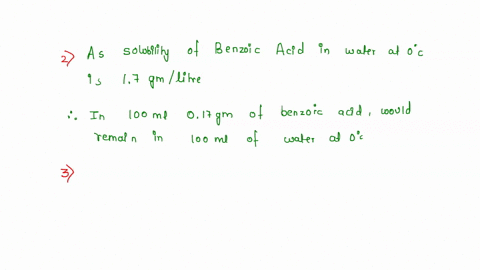 2) As solubility of Benzoic Acid in water at 0°c
is 1.7 gm/litre
∴ In 100 ml 0.17 gm of benzoic acid, would
remain in 100 ml of water at 0°c
3)